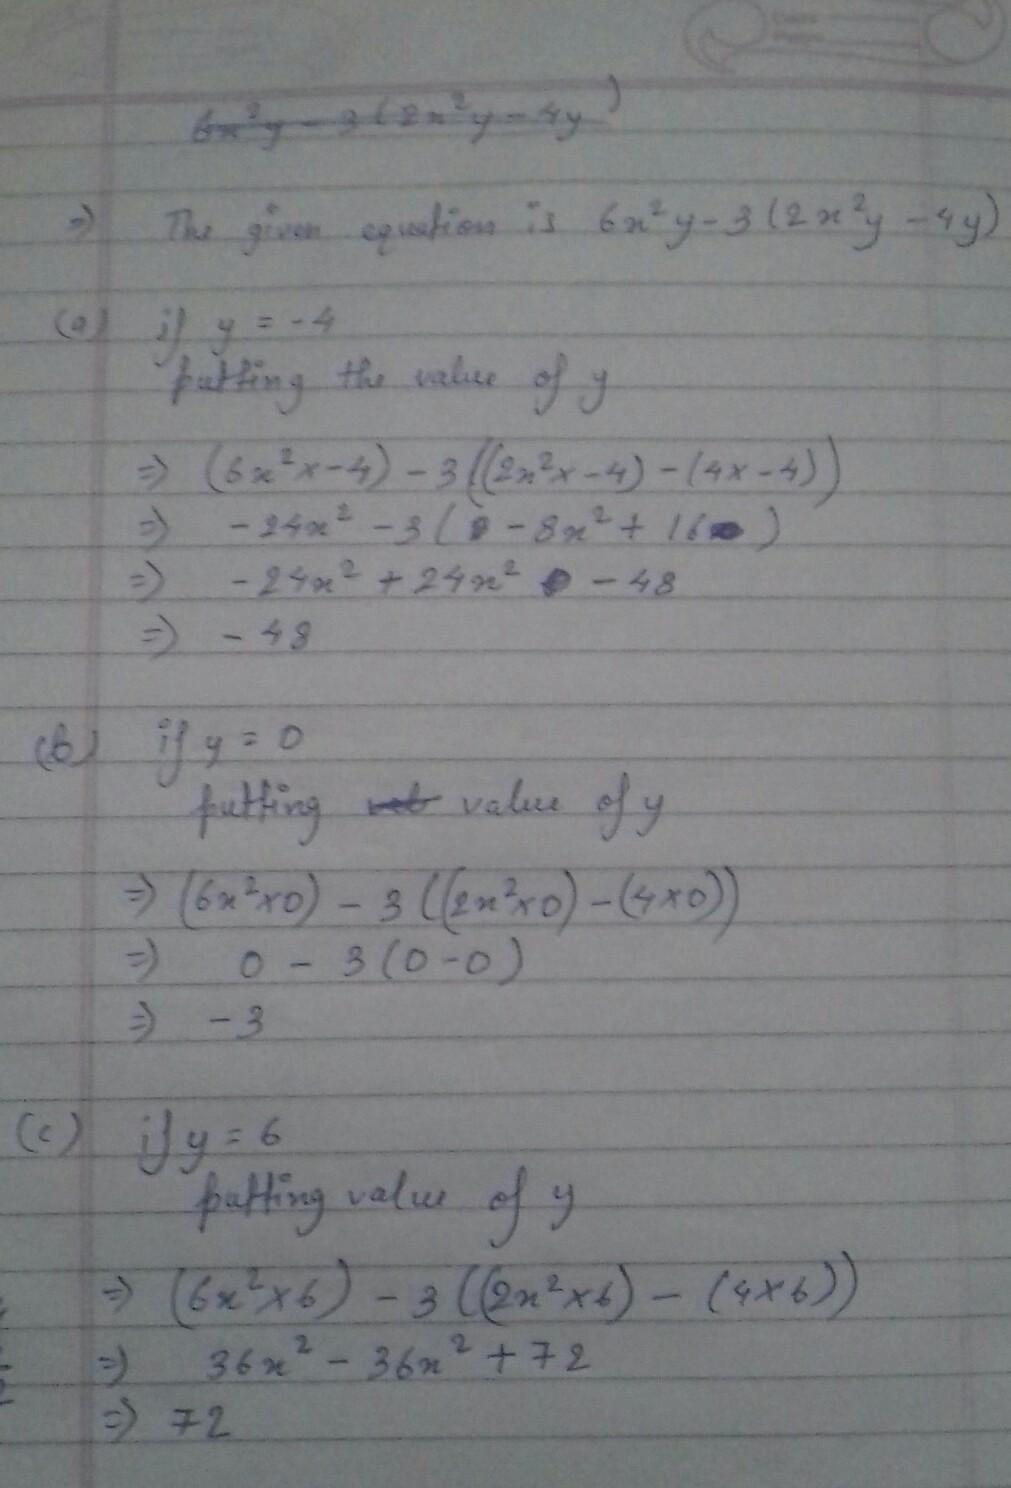 6x²y - 3(2x²y - 4y)
⇒ The given equation is 6x²y - 3(2x²y - 4y)
(a) if y = -4
putting the value of y
⇒ (6x²x-4) - 3((2x²x-4) - (4x-4))
⇒ -24x² - 3( - 8x² + 16 )
⇒ -24x² + 24x² - 48
⇒ -48
(b) if y = 0
putting value of y
⇒ (6x²x0) - 3((2x²x0) - (4x0))
⇒ 0 - 3(0-0)
⇒ -3
(c) if y = 6
putting value of y
⇒ (6x²x6) - 3((2x²x6) - (4x6))
⇒ 36x² - 36x² + 72
⇒ 72